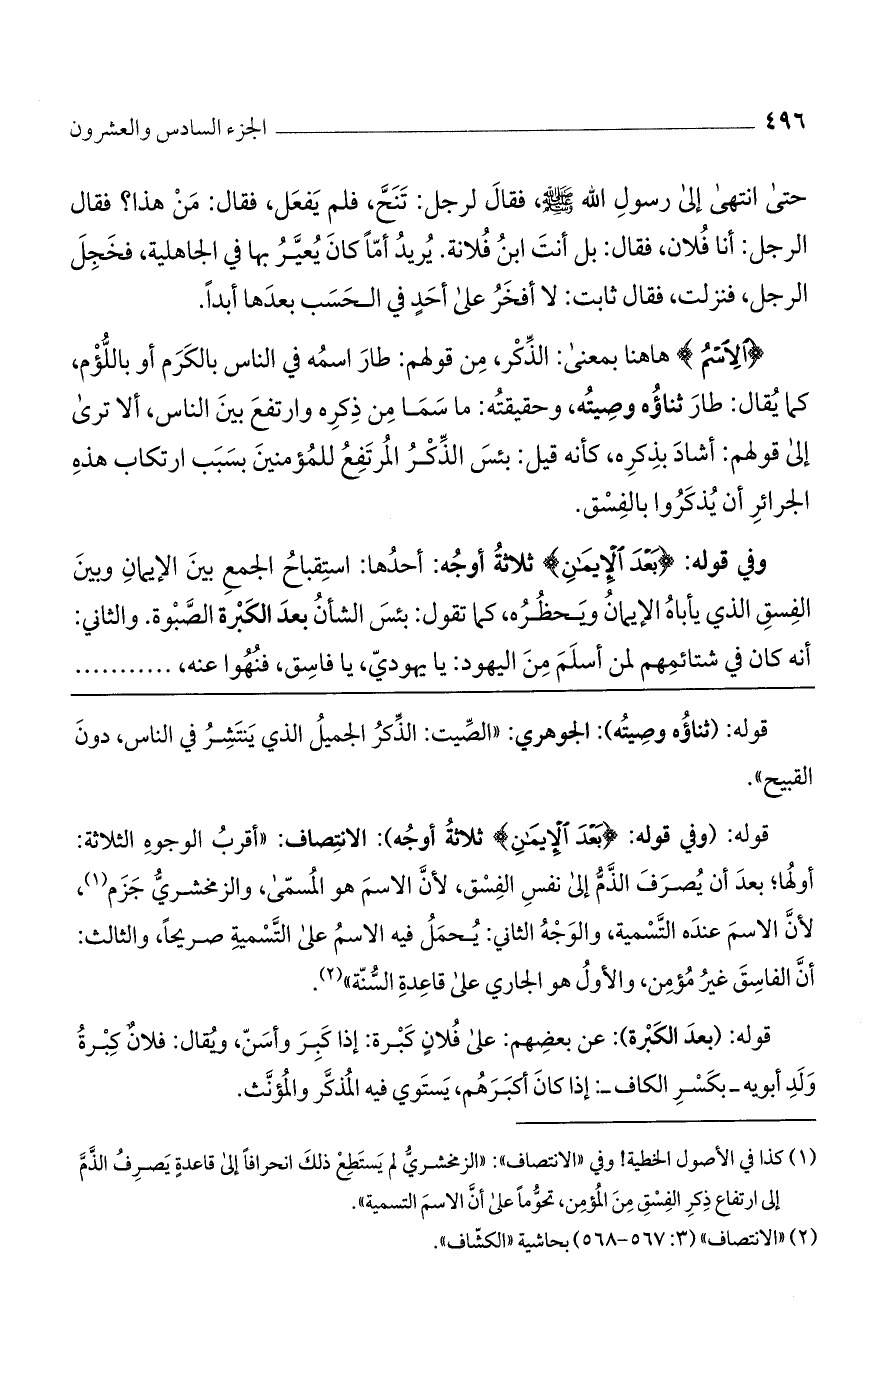 ٤٩٦ ــــــــــــــــــــ الجزء السادس والعشرون
حتىٰ انتهىٰ إلىٰ رسولِ الله ﷺ، فقالَ لرجل: تَنَحَّ، فلم يَفعَل، فقال: مَنْ هذا؟ فقال
الرجل: أنا فُلان، فقال: بل أنتَ ابنُ فُلانة. يُريدُ أمّاً كانَ يُعيَّرُ بها في الجاهلية، فخَجِلَ
الرجل، فنزلت، فقال ثابت: لا أفخَرُ علىٰ أحَدٍ في الـحَسَب بعدَها أبداً.
﴿ٱلِٱسْمُ﴾ هاهنا بمعنىٰ: الذِّكْر، مِن قولهم: طارَ اسمُه في الناس بالكَرَم أو باللُّؤْم،
كما يُقال: طارَ ثناؤُه وصِيتُه، وحقيقتُه: ما سَمَـا مِن ذِكرِه وارتفعَ بينَ الناس، ألا ترىٰ
إلىٰ قولهم: أشادَ بذِكرِه، كأنه قيل: بئسَ الذِّكْـرُ المُرتَفِعُ للمُؤمنينَ بسَبَب ارتكاب هذهِ
الجرائرِ أن يُذكَرُوا بالفِسْق.
وفي قوله: ﴿بَعْدَ ٱلْإِيمَٰنِ﴾ ثلاثةُ أوجُه: أحدُها: استِقباحُ الجمعِ بينَ الإيمانِ وبينَ
الفِسقِ الذي يأباهُ الإيمانُ ويَـحظُـرُه، كما تقول: بئسَ الشأنُ بعدَ الكَبْرة الصَّبْوة. والثاني:
أنه كان في شتائمِهم لمن أسلَمَ مِنَ اليهود: يا يهوديّ، يا فاسِق، فنُهُوا عنه، ...........
قوله: (ثناؤُه وصِيتُه): الجوهري: «الصِّيت: الذِّكرُ الجميلُ الذي يَنتَشِـرُ في الناس، دونَ
القبيح».
قوله: (وفي قوله: ﴿بَعْدَ ٱلْإِيمَٰنِ﴾ ثلاثةُ أوجُه): الانتِصاف: «أقربُ الوجوهِ الثلاثة:
أولُها؛ بعدَ أن يُصـرَفَ الذَّمُّ إلىٰ نفسِ الفِسْق، لأنَّ الاسمَ هو المُسمّىٰ، والزمخشريُّ جَزَم(١)،
لأنَّ الاسمَ عندَه التَّسْمية، والوَجْهُ الثاني: يُـحمَلُ فيه الاسمُ علىٰ التَّسْميةِ صريحاً، والثالث:
أنَّ الفاسِقَ غيرُ مُؤمِن، والأولُ هو الجاري علىٰ قاعِدةِ السُّنّة»(٢).
قوله: (بعدَ الكَبْرة): عن بعضِهم: علىٰ فُلانٍ كَبْـرة: إذا كَبِـرَ وأسَنّ، ويُقال: فلانٌ كِبْـرةُ
وَلَدِ أبويه ـ بكَسْـرِ الكاف ـ: إذا كانَ أكبَـرَهُم، يَستَوي فيه المُذكَّر والمُؤنَّث.
(١) كذا في الأصول الخطية! وفي «الانتصاف»: «الزمخشـريُّ لم يَستَطِعْ ذلكَ انحرافاً إلىٰ قاعدةٍ يَصـرِفُ الذَّمَّ
إلى ارتفاع ذِكرِ الفِسْقِ مِنَ المُؤمِن، تحوُّماً علىٰ أنَّ الاسمَ التسمية».
(٢) «الانتصاف» (٣: ٥٦٧-٥٦٨) بحاشية «الكشّاف».